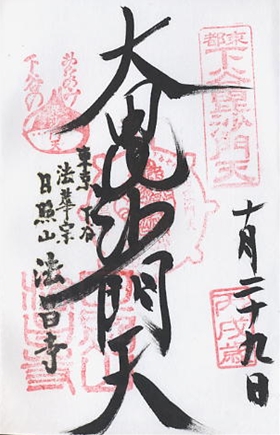 東京都
下谷毘沙門天
十月二十九日
丙戌歳
大毘沙門天
東京 下谷
法華宗
日照山 法昌寺